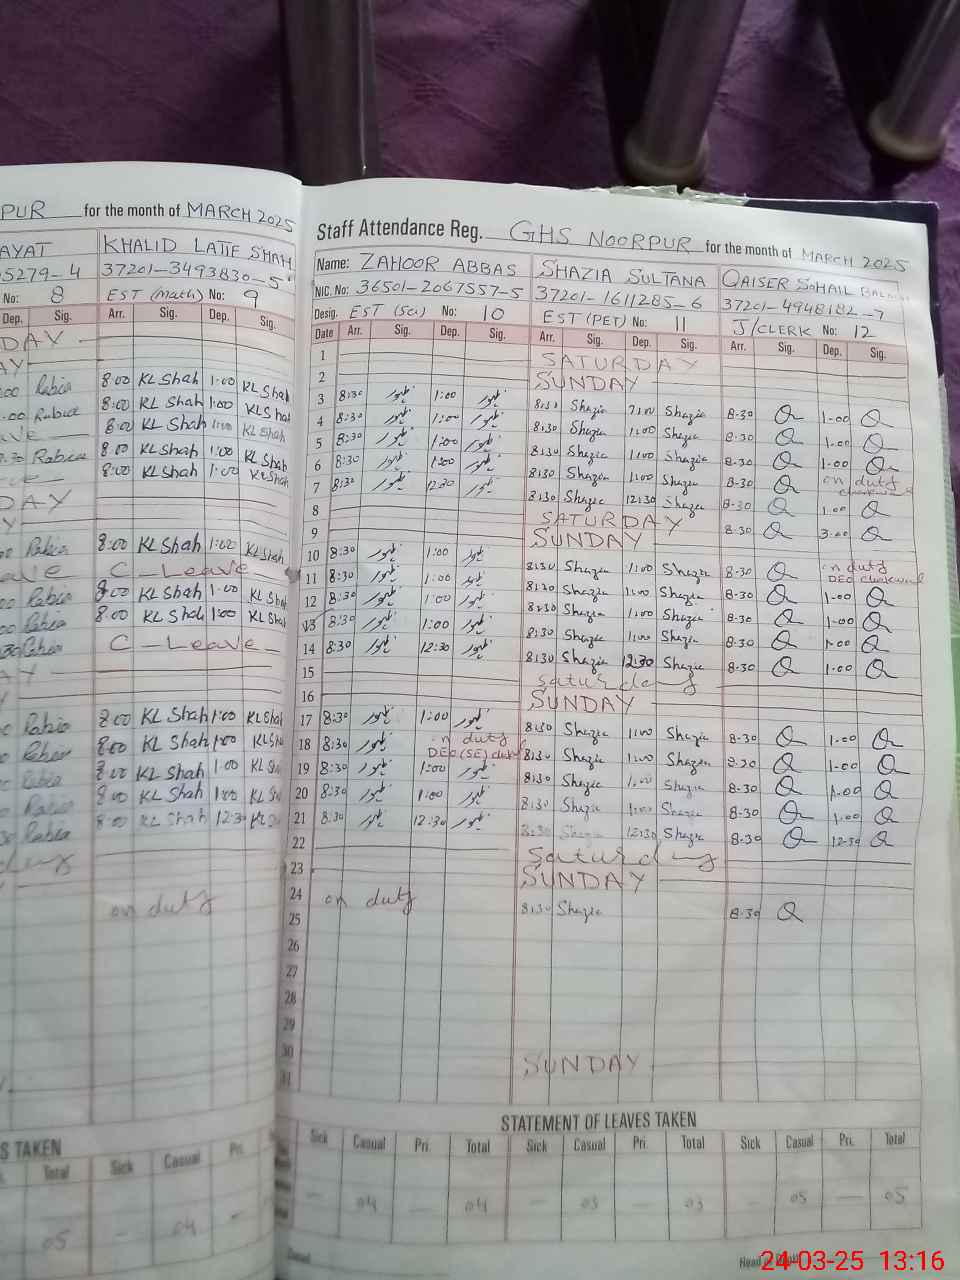 PUR for the month of MARCH 2025
AYAT KHALID LATIF SHAH
5279-4 37201-3493830-5
No: 8 EST (math) No: 9
Dep. Sig. Arr. Sig. Dep. Sig.
DAY
AY
00 Rabia 8:00 KL Shah 1:00 KL Shah
.00 Rabia 8:00 KL Shah 1:00 KL Shah
ave 8:00 KL Shah 1:00 KL Shah
8.30 Rabia 8:00 KL Shah 1:00 KL Shah
8:00 KL Shah 1:00 KL Shah
DAY
Y
00 Rabia 8:00 KL Shah 1:00 KL Shah
ave C-Leave
00 Rabia 8:00 KL Shah 1:00 KL Shah
00 Rabia 8:00 KL Shah 1:00 KL Shah
30 Rabia C-Leave
AY
Rabia 8:00 KL Shah 1:00 KL Shah
Rabia 8:00 KL Shah 1:00 KL Sha
Rabia 8:00 KL Shah 1:00 KL Sha
Rabia 8:00 KL Shah 1:00 KL Sh
30 Rabia 8:00 KL Shah 12:30 KL S
on duty
S TAKEN
Total Sick Casual Pri.
05 - 04 -
Staff Attendance Reg. GHS NOORPUR for the month of MARCH 2025
Name: ZAHOOR ABBAS SHAZIA SULTANA QAISER SOHAIL
NIC. No: 36501-2067557-5 37201-1611285-6 37201-4948182-7
Desig. EST (Sci) No: 10 EST (PET) No: 11 J/CLERK No: 12
Date Arr. Sig. Dep. Sig. Arr. Sig. Dep. Sig. Arr. Sig. Dep. Sig.
1 SATURDAY
2 SUNDAY
3 8:30 ظہور 1:00 ظہور 8:30 Shazia 1:00 Shazia 8-30 1-00
4 8:30 ظہور 1:00 ظہور 8:30 Shazia 1:00 Shazia 8-30 1-00
5 8:30 ظہور 1:00 ظہور 8:30 Shazia 1:00 Shazia 8-30 1-00
6 8:30 ظہور 1:00 ظہور 8:30 Shazia 1:00 Shazia 8-30 on duty
7 8:30 ظہور 12:30 ظہور 8:30 Shazia 12:30 Shazia 8-30 1-00
8 SATURDAY 8-30 3-00
9 SUNDAY
10 8:30 ظہور 1:00 ظہور 8:30 Shazia 1:00 Shazia 8-30 on duty DEO
11 8:30 ظہور 1:00 ظہور 8:30 Shazia 1:00 Shazia 8-30 1-00
12 8:30 ظہور 1:00 ظہور 8:30 Shazia 1:00 Shazia 8-30 1-00
13 8:30 ظہور 1:00 ظہور 8:30 Shazia 1:00 Shazia 8-30 1-00
14 8:30 ظہور 12:30 ظہور 8:30 Shazia 12:30 Shazia 8-30 1-00
15 Saturday
16 SUNDAY
17 8:30 ظہور 1:00 ظہور 8:30 Shazia 1:00 Shazia 8-30 1-00
18 8:30 ظہور on duty DEO (SE) 8:30 Shazia 1:00 Shazia 8-30 1-00
19 8:30 ظہور 1:00 ظہور 8:30 Shazia 1:00 Shazia 8-30 1-00
20 8:30 ظہور 1:00 ظہور 8:30 Shazia 1:00 Shazia 8-30 1-00
21 8:30 ظہور 12:30 ظہور 8:30 Shazia 12:30 Shazia 8-30 12-30
22 Saturday
23 SUNDAY
24 on duty 8:30 Shazia 8-30
25
26
27
28
29
30 SUNDAY
31
STATEMENT OF LEAVES TAKEN
Sick Casual Pri. Total Sick Casual Pri. Total Sick Casual Pri. Total
- 04 04 - 03 03 - 05 - 05
Head of
24-03-25 13:16